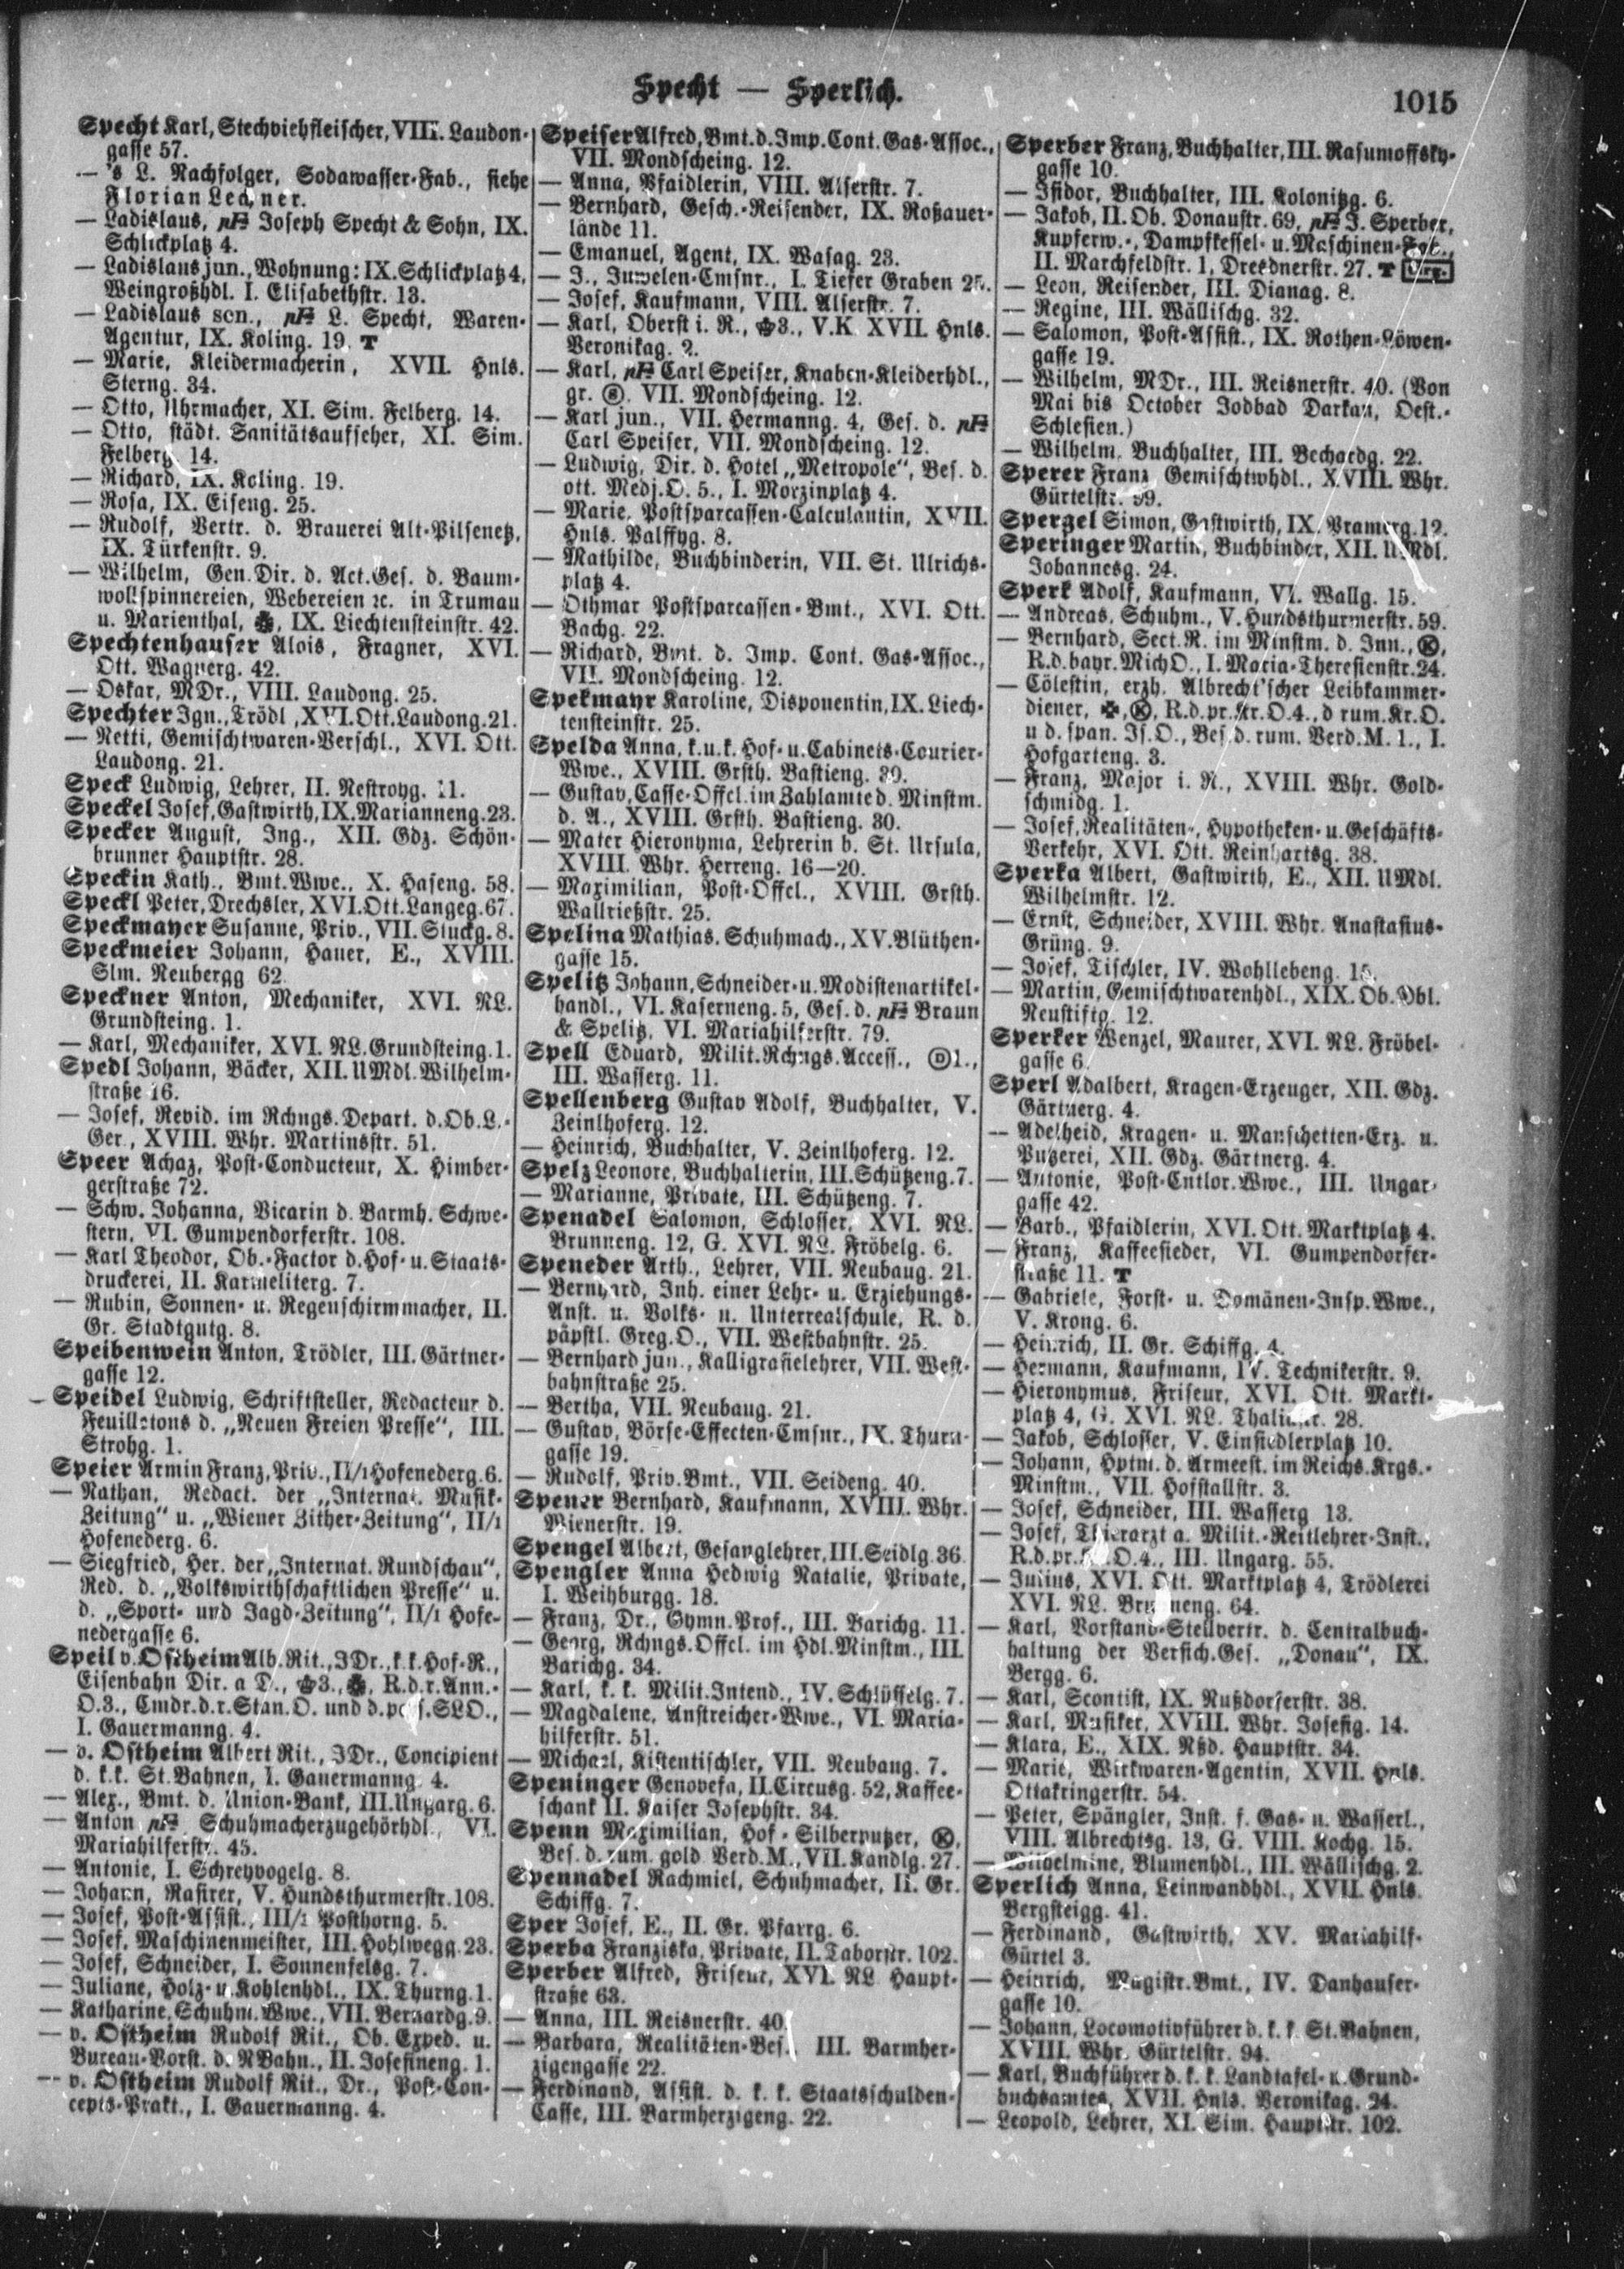 Specht — Sperlich.
1015
Specht Karl, Stechviehfleischer, VIII. Laudon-
gasse 57.
— 's L. Nachfolger, Sodawasser-Fab., siehe
Florian Lechner.
— Ladislaus, Joseph Specht & Sohn, IX.
Schlickplatz 4.
— Ladislaus jun., Wohnung: IX. Schlickplatz 4,
Weingroßhdl. I. Elisabethstr. 13.
— Ladislaus sen., L. Specht, Waren-
Agentur, IX. Koling. 19. T
— Marie, Kleidermacherin, XVII. Hnls.
Sterng. 34.
— Otto, Uhrmacher, XI. Sim. Felberg. 14.
— Otto, städt. Sanitätsaufseher, XI. Sim.
Felberg. 14.
— Richard, IX. Koling. 19.
— Rosa, IX. Eiseng. 25.
— Rudolf, Vertr. d. Brauerei Alt-Pilsenetz,
IX. Türkenstr. 9.
— Wilhelm, Gen. Dir. d. Act. Ges. d. Baum-
wollspinnereien, Webereien ꝛc. in Trumau
u. Marienthal, IX. Liechtensteinstr. 42.
Spechtenhauser Alois, Fragner, XVI.
Ott. Wagnerg. 42.
— Oskar, MDr., VIII. Laudong. 25.
Spechter Ign., Trödl., XVI. Ott. Laudong. 21.
— Netti, Gemischtwaren-Verschl., XVI. Ott.
Laudong. 21.
Speck Ludwig, Lehrer, II. Nestroyg. 11.
Speckel Josef, Gastwirth, IX. Marianneng. 23.
Specker August, Ing., XII. Gdz. Schön-
brunner Hauptstr. 28.
Speckin Kath., Bmt. Wwe., X. Haseng. 58.
Speckl Peter, Drechsler, XVI. Ott. Langeg. 67.
Speckmayer Susanne, Priv., VII. Stuckg. 8.
Speckmeier Johann, Hauer, E., XVIII.
Slm. Neubergg 62.
Speckner Anton, Mechaniker, XVI. NL.
Grundsteing. 1.
— Karl, Mechaniker, XVI. NL. Grundsteing. 1.
Spedl Johann, Bäcker, XII. UMdl. Wilhelm-
straße 16.
— Josef, Revid. im Rchngs. Depart. d. Ob. L.-
Ger., XVIII. Whr. Martinsstr. 51.
Speer Achaz, Post-Conducteur, X. Himber-
gerstraße 72.
— Schw. Johanna, Vicarin d. Barmh. Schwe-
stern, VI. Gumpendorferstr. 108.
— Karl Theodor, Ob.-Factor d. Hof- u. Staats-
druckerei, II. Karmeliterg. 7.
— Rubin, Sonnen- u. Regenschirmmacher, II.
Gr. Stadtgutg. 8.
Speibenwein Anton, Trödler, III. Gärtner-
gasse 12.
Speidel Ludwig, Schriftsteller, Redacteur d.
Feuilletons d. „Neuen Freien Presse“, III.
Strohg. 1.
Speier Armin Franz, Priv., II/1 Hofenederg. 6.
— Nathan, Redact. der „Internat. Musik-
Zeitung“ u. „Wiener Zither-Zeitung“, II/1
Hofenederg. 6.
— Siegfried, Her. der „Internat. Rundschau“,
Red. d. „Volkswirthschaftlichen Presse“ u.
d. „Sport- und Jagd-Zeitung“, II/1 Hofe-
nedergasse 6.
Speil v. Ostheim Alb. Rit., JDr., k. k. Hof-R.,
Eisenbahn Dir. a D., 3., R. d. r. Ann.-
O. 3., Cmdr. d. r. Stan. O. und d. pers. SLO.,
I. Gauermanng. 4.
— v. Ostheim Albert Rit., JDr., Concipient
d. k. k. St. Bahnen, I. Gauermanng. 4.
— Alex., Bmt. d. Union-Bank, III. Ungarg. 6.
— Anton Schuhmacherzugehörhdl., VI.
Mariahilferstr. 45.
— Antonie, I. Schreyvogelg. 8.
— Johann, Rasirer, V. Hundsthurmerstr. 108.
— Josef, Post-Assist., III/2 Posthorng. 5.
— Josef, Maschinenmeister, III. Hohlwegg. 23.
— Josef, Schneider, I. Sonnenfelsg. 7.
— Juliane, Holz- u. Kohlenhdl., IX. Thurng. 1.
— Katharine, Schuhm. Wwe., VII. Bernardg. 9.
— v. Ostheim Rudolf Rit., Ob. Exped. u.
Bureau-Vorst. d. NBahn., II. Josefineng. 1.
— v. Ostheim Rudolf Rit., Dr., Post-Con-
cepts-Prakt., I. Gauermanng. 4.
Speiser Alfred, Bmt. d. Imp. Cont. Gas-Assoc.,
VII. Mondscheing. 12.
— Anna, Pfaidlerin, VIII. Alserstr. 7.
— Bernhard, Gesch.-Reisender, IX. Roßauer-
lände 11.
— Emanuel, Agent, IX. Wasag. 23.
— J., Juwelen-Cmsnr., I. Tiefer Graben 25.
— Josef, Kaufmann, VIII. Alserstr. 7.
— Karl, Oberst i. R., 3., V.K. XVII. Hnls.
Veronikag. 2.
— Karl, Carl Speiser, Knaben-Kleiderhdl.,
gr. VII. Mondscheing. 12.
— Karl jun., VII. Hermanng. 4, Ges. d.
Carl Speiser, VII. Mondscheing. 12.
— Ludwig, Dir. d. Hotel „Metropole“, Bes. d.
ott. Medj. O. 5., I. Morzinplatz 4.
— Marie, Postsparcassen-Calculantin, XVII.
Hnls. Palffyg. 8.
— Mathilde, Buchbinderin, VII. St. Ulrichs-
platz 4.
— Othmar Postsparcassen-Bmt., XVI. Ott.
Bachg. 22.
— Richard, Bmt. d. Imp. Cont. Gas-Assoc.,
VII. Mondscheing. 12.
Spekmayr Karoline, Disponentin, IX. Liech-
tensteinstr. 25.
Spelda Anna, k. u. k. Hof- u. Cabinets-Courier-
Wwe., XVIII. Grsth. Bastieng. 30.
— Gustav, Casse-Offcl. im Zahlamte d. Minstm.
d. A., XVIII. Grsth. Bastieng. 30.
— Mater Hieronyma, Lehrerin b. St. Ursula,
XVIII. Whr. Herreng. 16—20.
— Maximilian, Post-Offcl., XVIII. Grsth.
Wallrießstr. 25.
Spelina Mathias, Schuhmach., XV. Blüthen-
gasse 15.
Spelitz Johann, Schneider- u. Modistenartikel-
handl., VI. Kaserneng. 5, Ges. d. Braun
& Spelitz, VI. Mariahilferstr. 79.
Spell Eduard, Milit. Rchngs. Access., Ⓓ1.,
III. Wasserg. 11.
Spellenberg Gustav Adolf, Buchhalter, V.
Zeinlhoferg. 12.
— Heinrich, Buchhalter, V. Zeinlhoferg. 12.
Spelz Leonore, Buchhalterin, III. Schützeng. 7.
— Marianne, Private, III. Schützeng. 7.
Spenadel Salomon, Schlosser, XVI. NL.
Brunneng. 12, G. XVI. NL. Fröbelg. 6.
Speneder Arth., Lehrer, VII. Neubaug. 21.
— Bernhard, Inh. einer Lehr- u. Erziehungs-
Anst. u. Volks- u. Unterrealschule, R. d.
päpstl. Greg. O., VII. Westbahnstr. 25.
— Bernhard jun., Kalligrafielehrer, VII. West-
bahnstraße 25.
— Bertha, VII. Neubaug. 21.
— Gustav, Börse-Effecten-Cmsnr., IX. Thurn-
gasse 19.
— Rudolf, Priv. Bmt., VII. Seideng. 40.
Spener Bernhard, Kaufmann, XVIII. Whr.
Wienerstr. 19.
Spengel Albert, Gesanglehrer, III. Seidlg. 36.
Spengler Anna Hedwig Natalie, Private,
I. Weihburgg. 18.
— Franz, Dr., Gymn. Prof., III. Barichg. 11.
— Georg, Rchngs. Offcl. im Hdl. Minstm., III.
Barichg. 34.
— Karl, k. k. Milit. Intend., IV. Schlüsselg. 7.
— Magdalene, Anstreicher-Wwe., VI. Maria-
hilferstr. 51.
— Michael, Kistentischler, VII. Neubaug. 7.
Speninger Genovefa, II. Circusg. 52, Kaffee-
schank II. Kaiser Josephstr. 34.
Spenn Maximilian, Hof-Silberputzer, Ⓚ,
Bes. d. rum. gold. Verd. M., VII. Kandlg. 27.
Spennadel Rachmiel, Schuhmacher, II. Gr.
Schiffg. 7.
Sper Josef, E., II. Gr. Pfarrg. 6.
Sperba Franziska, Private, II. Taborstr. 102.
Sperber Alfred, Friseur, XVI. NL. Haupt-
straße 63.
— Anna, III. Reisnerstr. 40.
— Barbara, Realitäten-Bes., III. Barmher-
zigengasse 22.
— Ferdinand, Assist. d. k. k. Staatsschulden-
Casse, III. Barmherzigeng. 22.
Sperber Franz, Buchhalter, III. Rasumoffsky-
gasse 10.
— Isidor, Buchhalter, III. Kolonitzg. 6.
— Jakob, II. Ob. Donaustr. 69, J. Sperber,
Kupferw.-, Dampfkessel- u. Maschinen-Fbk.,
II. Marchfeldstr. 1, Dresdnerstr. 27. T
— Leon, Reisender, III. Dianag. 8.
— Regine, III. Wällischg. 32.
— Salomon, Post-Assist., IX. Rothen-Löwen-
gasse 19.
— Wilhelm, MDr., III. Reisnerstr. 40. (Von
Mai bis October Jodbad Darkau, Oest.-
Schlesien.)
— Wilhelm, Buchhalter, III. Bechardg. 22.
Sperer Franz Gemischtwhdl., XVIII. Whr.
Gürtelstr. 99.
Spergel Simon, Gastwirth, IX. Pramerg. 12.
Speringer Martin, Buchbinder, XII. UMdl.
Johannesg. 24.
Sperk Adolf, Kaufmann, VI. Wallg. 15.
— Andreas, Schuhm., V. Hundsthurmerstr. 59.
— Bernhard, Sect. R. im Minstm. d. Inn., Ⓚ,
R. d. bayr. MichO., I. Maria-Theresienstr. 24.
— Cölestin, erzh. Albrecht'scher Leibkammer-
diener, ✠, Ⓚ, R. d. pr. Kr. O. 4., d rum. Kr. O.
u d. span. Is. O., Bes. d. rum. Verd. M. 1., I.
Hofgarteng. 3.
— Franz, Major i. R., XVIII. Whr. Gold-
schmidg. 1.
— Josef, Realitäten-, Hypotheken- u. Geschäfts-
Verkehr, XVI. Ott. Reinhartsg. 38.
Sperka Albert, Gastwirth, E., XII. UMdl.
Wilhelmstr. 12.
— Ernst, Schneider, XVIII. Whr. Anastasius-
Grüng. 9.
— Josef, Tischler, IV. Wohllebeng. 15.
— Martin, Gemischtwarenhdl., XIX. Ob. Dbl.
Neustiftg. 12.
Sperker Wenzel, Maurer, XVI. NL. Fröbel-
gasse 6.
Sperl Adalbert, Kragen-Erzeuger, XII. Gdz.
Gärtnerg. 4.
— Adelheid, Kragen- u. Manschetten-Erz. u.
Putzerei, XII. Gdz. Gärtnerg. 4.
— Antonie, Post-Cntlor. Wwe., III. Ungar-
gasse 42.
— Barb., Pfaidlerin, XVI. Ott. Marktplatz 4.
— Franz, Kaffeesieder, VI. Gumpendorfer-
straße 11. T
— Gabriele, Forst- u. Domänen-Insp. Wwe.,
V. Krong. 6.
— Heinrich, II. Gr. Schiffg. 4.
— Hermann, Kaufmann, IV. Technikerstr. 9.
— Hieronymus, Friseur, XVI. Ott. Markt-
platz 4, G. XVI. NL. Thaliastr. 28.
— Jakob, Schlosser, V. Einsiedlerplatz 10.
— Johann, Hptm. d. Armeest. im Reichs. Krgs.-
Minstm., VII. Hofstallstr. 3.
— Josef, Schneider, III. Wasserg 13.
— Josef, Thierarzt a. Milit.-Reitlehrer-Inst.,
R. d. pr. O. 4., III. Ungarg. 55.
— Julius, XVI. Ott. Marktplatz 4, Trödlerei
XVI. NL. Brunneng. 64.
— Karl, Vorstand-Stellvertr. d. Centralbuch-
haltung der Versich. Ges. „Donau“, IX.
Bergg. 6.
— Karl, Scontist, IX. Nußdorferstr. 38.
— Karl, Musiker, XVIII. Whr. Josefig. 14.
— Klara, E., XIX. Nßd. Hauptstr. 34.
— Marie, Wirkwaren-Agentin, XVII. Hnls.
Ottakringerstr. 54.
— Peter, Spängler, Inst. f. Gas- u. Wasserl.,
VIII. Albrechtsg. 13, G. VIII. Kochg. 15.
— Wilhelmine, Blumenhdl., III. Wällischg. 2.
Sperlich Anna, Leinwandhdl., XVII. Hnls.
Bergsteigg. 41.
— Ferdinand, Gastwirth, XV. Mariahilf-
Gürtel 3.
— Heinrich, Magistr. Bmt., IV. Danhauser-
gasse 10.
— Johann, Locomotivführer d. k. k. St. Bahnen,
XVIII. Whr. Gürtelstr. 94.
— Karl, Buchführer d. k. k. Landtafel- u. Grund-
buchsamtes, XVII. Hnls. Veronikag. 24.
— Leopold, Lehrer, XI. Sim. Hauptstr. 102.